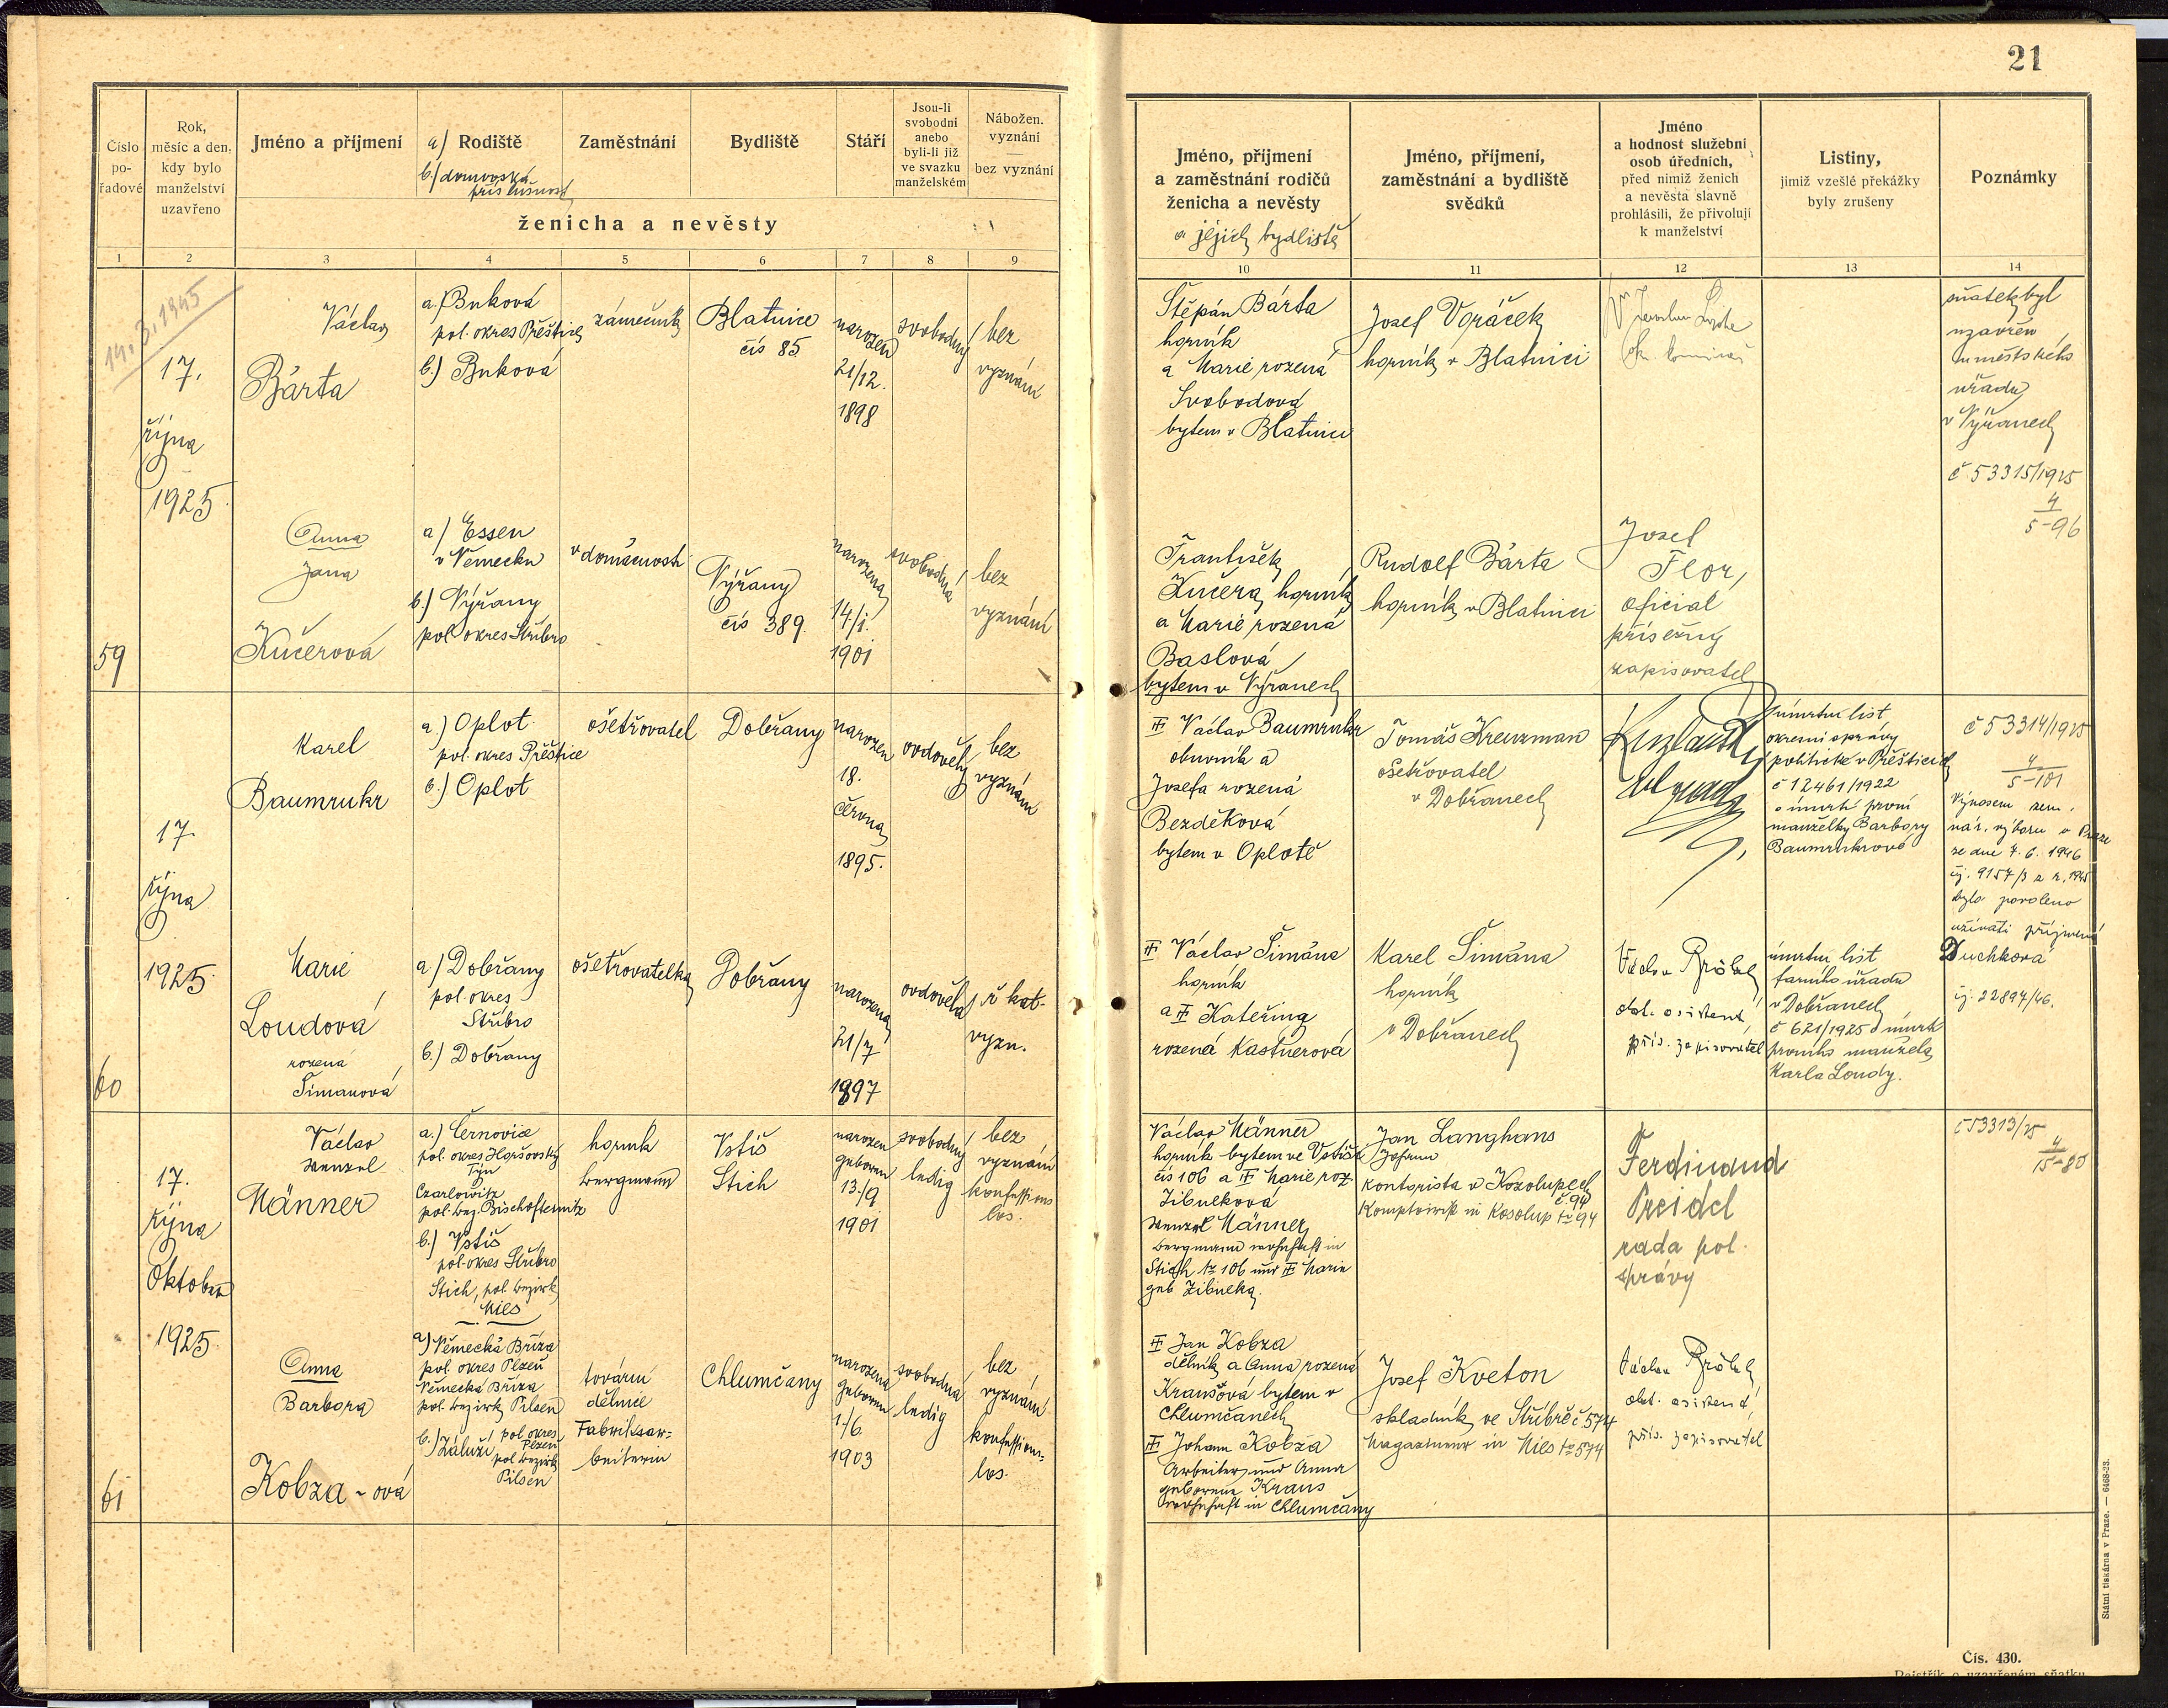 21
Číslo
po-
řadové
Rok,
měsíc a den,
kdy bylo
manželství
uzavřeno
Jméno a příjmení
a) Rodiště
b.) domovská
příslušnost
Zaměstnání
Bydliště
Stáří
Jsou-li
svobodni
anebo
byli-li již
ve svazku
manželském
Nábožen.
vyznání
bez vyznání
ženicha a nevěsty
1 2 3 4 5 6 7 8 9
Jméno, příjmení
a zaměstnání rodičů
ženicha a nevěsty
a jejich bydliště
Jméno, příjmení,
zaměstnání a bydliště
svědků
Jméno
a hodnost služební
osob úředních,
před nimiž ženich
a nevěsta slavně
prohlásili, že přivolují
k manželství
Listiny,
jimiž vzešlé překážky
byly zrušeny
Poznámky
10 11 12 13 14
59
14.3.1945
17.
října
1925.
Václav
Bárta
a.) Buková
pol. okres Přeštice
b.) Buková
zámečník
Blatnice
čís 85
narozen
21/12.
1898
svobodný
bez
vyznání
Štěpán Bárta
horník
a Marie rozená
Svobodová
bytem v Blatnici
Josef Voráček
horník v Blatnici
sňatek byl
uzavřen
u městského
úřadu
v Nýřanech
č 53315/1925
4
5-96
Anna
Jana
Kučerová
a) Essen
v Německu
b.) Nýřany
pol. okres Stříbro
v domácnosti
Nýřany
čís 389.
narozena
14./1.
1901
svobodná
bez
vyznání
František
Kučera, horník
a Marie rozená
Baslová
bytem v Nýřanech
Rudolf Bárta
horník v Blatnici
Josef
Flor,
oficiál
přísežný
zapisovatel
60
17.
října
1925.
Karel
Baumrukr
a.) Oplot
pol. okres Přeštice
b.) Oplot
ošetřovatel
Dobřany
narozen
18.
června
1895.
ovdovělý
bez
vyznání
Václav Baumrukr
obuvník a
Josefa rozená
Bezděková
bytem v Oplotě
Tomáš Kreuzman
ošetřovatel
v Dobřanech
úmrtní list
okresní správy
politické v Přešticích
č 12461/1922
o úmrtí první
manželky Barbory
Baumrukrové
č 53314/1925
4
5-101
Výnosem zem.
nár. výboru v Praze
ze dne 7.6.1946
čj. 9157/3 a r. 1945
bylo povoleno
užívati příjmení
Duchková
čj. 22897/46.
Marie
Loudová
rozená
Šimanová
a) Dobřany
pol. okres
Stříbro
b.) Dobřany
ošetřovatelka
Dobřany
narozena
21/7
1897
ovdovělá
ř. kat.
vyzn.
Václav Šimána
horník
a Kateřina
rozená Kastnerová
Karel Šimána
horník
v Dobřanech
Václav
obl. asistent,
přís. zapisovatel
úmrtní list
farního úřadu
v Dobřanech
č 621/1925 o úmrtí
prvního manžela
Karla Loudy.
61
17.
října
Oktober
1925.
Václav
Wenzel
Männer
a.) Černovice
pol. okres Horšovský
Týn
Czarlowitz
pol. bez. Bischofteinitz
b.) Vstiš
pol. okres Stříbro
Stich, pol. bezirk
Mies
horník
Bergmann
Vstiš
Stich
narozen
geboren
13./9
1901
svobodný
ledig
bez
vyznání
konfessions
los.
Václav Männer
horník bytem ve Vstiši
čís 106 a Marie roz.
Zibulková
Wenzel Männer
Bergmann wohnhaft in
Stich № 106 und Marie
geb Zibulka.
Jan Langhans
Johann
kontorista v Kozolupech
č. 94
Komptoirist in Kosolup № 94
Ferdinand
Preidel
rada pol.
správy
č 53313/25
4
15-80
Anna
Barbora
Kobza-ová
a) Německá Bříza
pol. okres Plzeň
Německá Bříza
pol. bezirk Pilsen
b.) Záluží, pol. okres
Plzeň
pol. bezirk
Pilsen
tovární
dělnice
Fabriksar=
beiterin
Chlumčany
narozena
geboren
1./6
1903
svobodná
ledig
bez
vyznání
konfessions=
los.
Jan Kobza
dělník a Anna rozená
Kraušová bytem v
Chlumčanech
Johann Kobza
Arbeiter und Anna
geborene Kraus
wohnhaft in Chlumčany
Josef Kveton
skladník ve Stříbře č 574
Magazineur in Mies № 574
Václav
obl. asistent,
přís. zapisovatel
Státní tiskárna v Praze. — 6468-23.
Čís. 430.
Rejstřík o uzavřeném sňatku